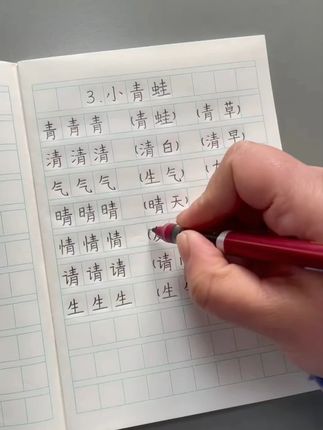 3.小青蛙
青青青 (青蛙) (青草)
清清清 (清白) (清早)
气气气 (生气) (
晴晴晴 (晴天)
情情情 (
请请请 (请
生生生 (生